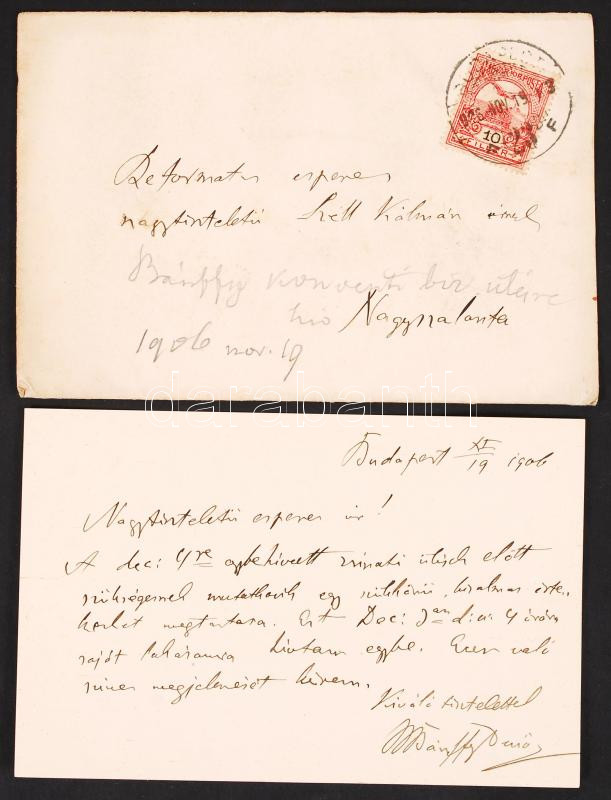 MAGYAR KIR. POSTA
906 NOV. 19
10
FILLÉR
Reformatus esperes
nagytiszteletü Széll Kálmán úrnak
Bánffy konventi biz. ülésre
hiv Nagyszalonta
1906 nov. 19
darabanth
Budapest XI/19 1906
Nagytiszteletü esperes úr!
A dec: 4re egybehivott zsinati ülések előtt
szükségesnek mutatkozik egy szűkkörü, bizalmas érte-
kezlet megtartása. Ezt Dec: 3án d: u: 4 órára
saját lakásomra hivtam egybe. Ezen való
szives megjelenését kérem.
Kiváló tisztelettel
Bánffy Dezső